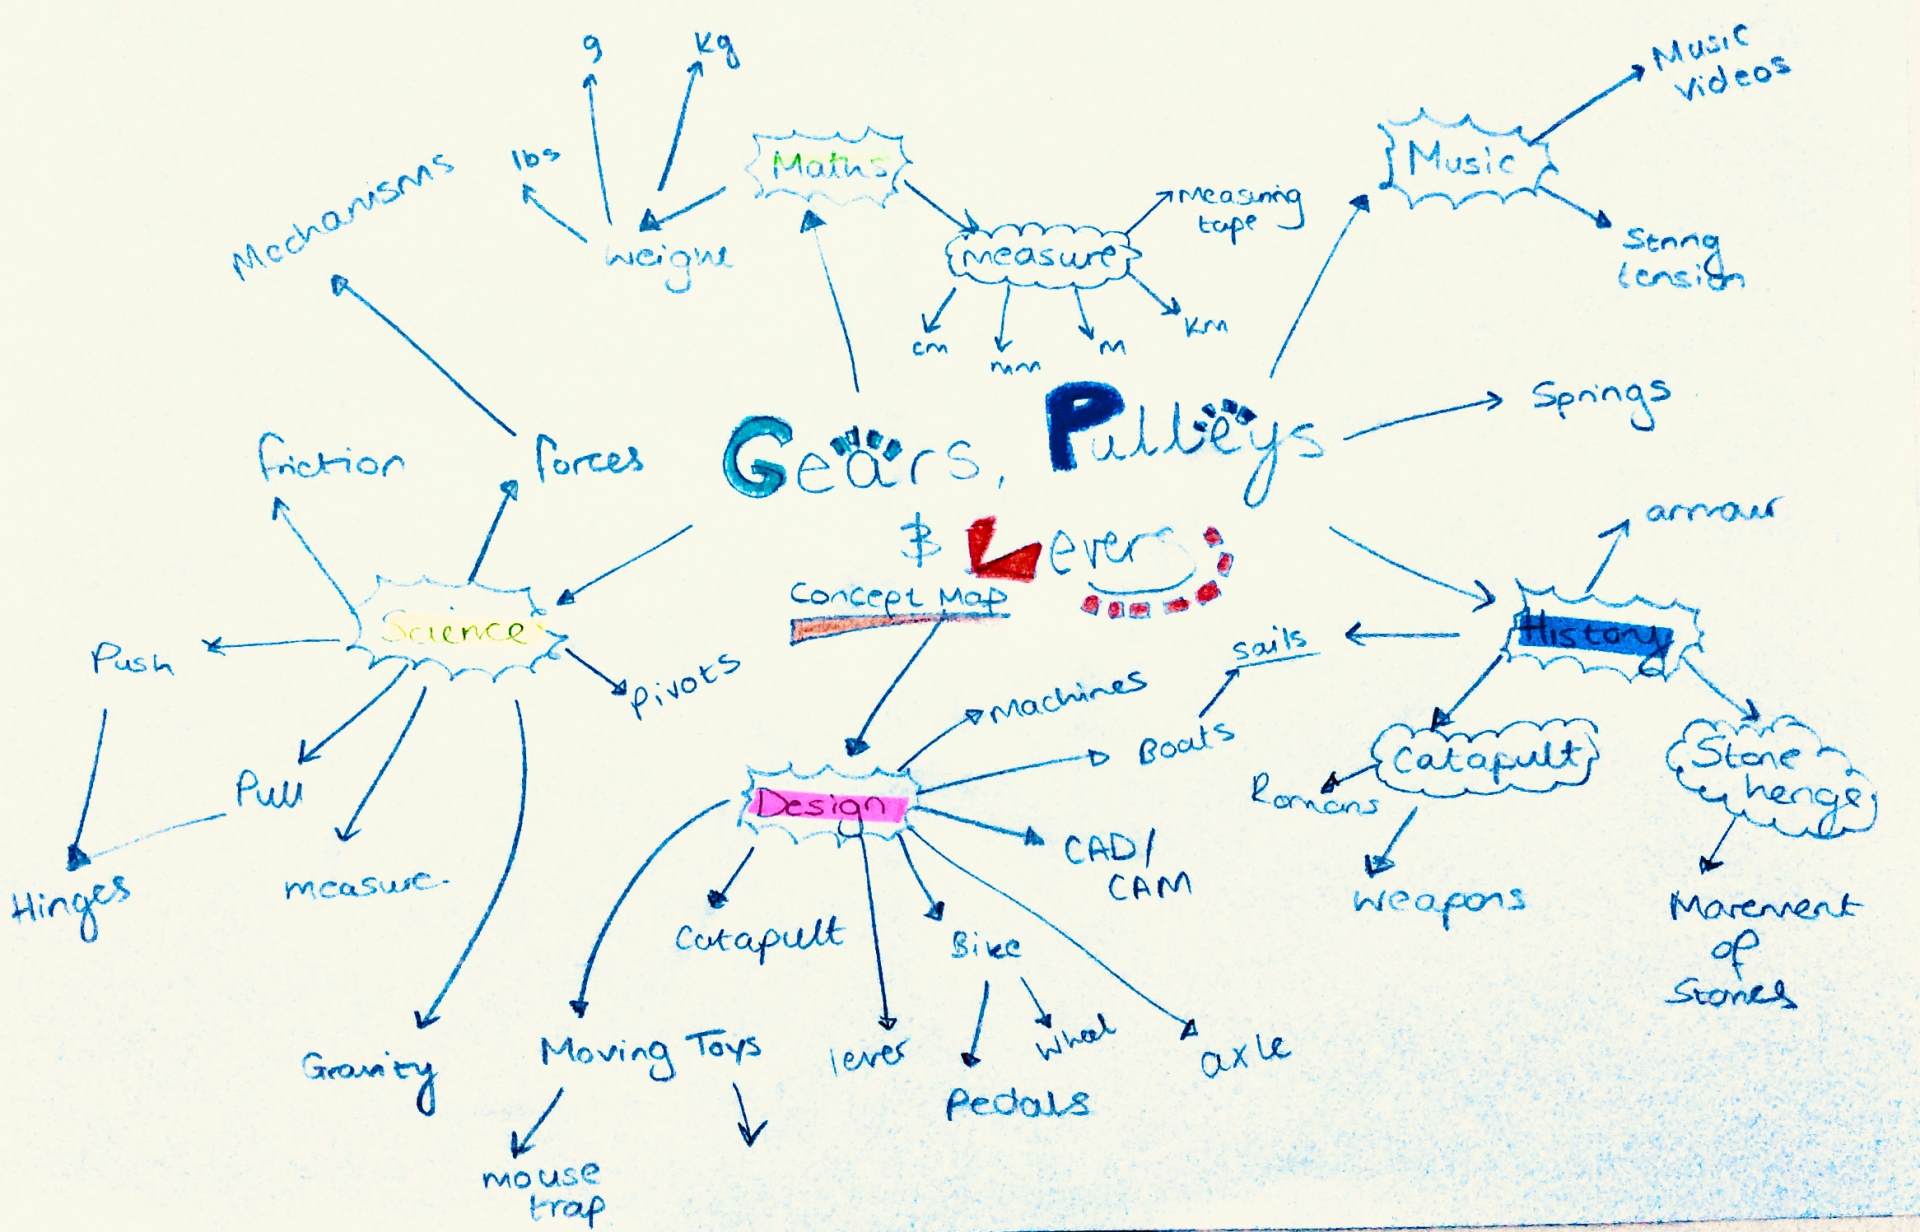 g
kg
Music
videos
lbs
Maths
Music
Mechanisms
Measuring
tape
weight
measure
String
tension
cm
mm
m
km
Springs
Gears, Pulleys
& Levers
Concept Map
friction
forces
armour
Science
History
Push
pivots
sails
Machines
Boats
Catapult
Stone
henge
Romans
Pull
Design
CAD/
CAM
measure
Hinges
weapons
Movement
of
Stones
Catapult
Bike
Gravity
Moving Toys
lever
wheel
axle
Pedals
mouse
trap